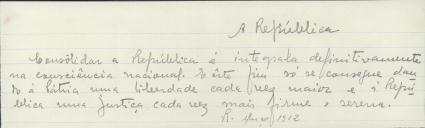 A República
Consolidar a República é integrala definitivamente
na consciência nacional. Este fim só se consegue dan-
do á Pátria uma liberdade cada vez maior e á Repú-
blica uma Justiça cada vez mais firme e serena.
1912